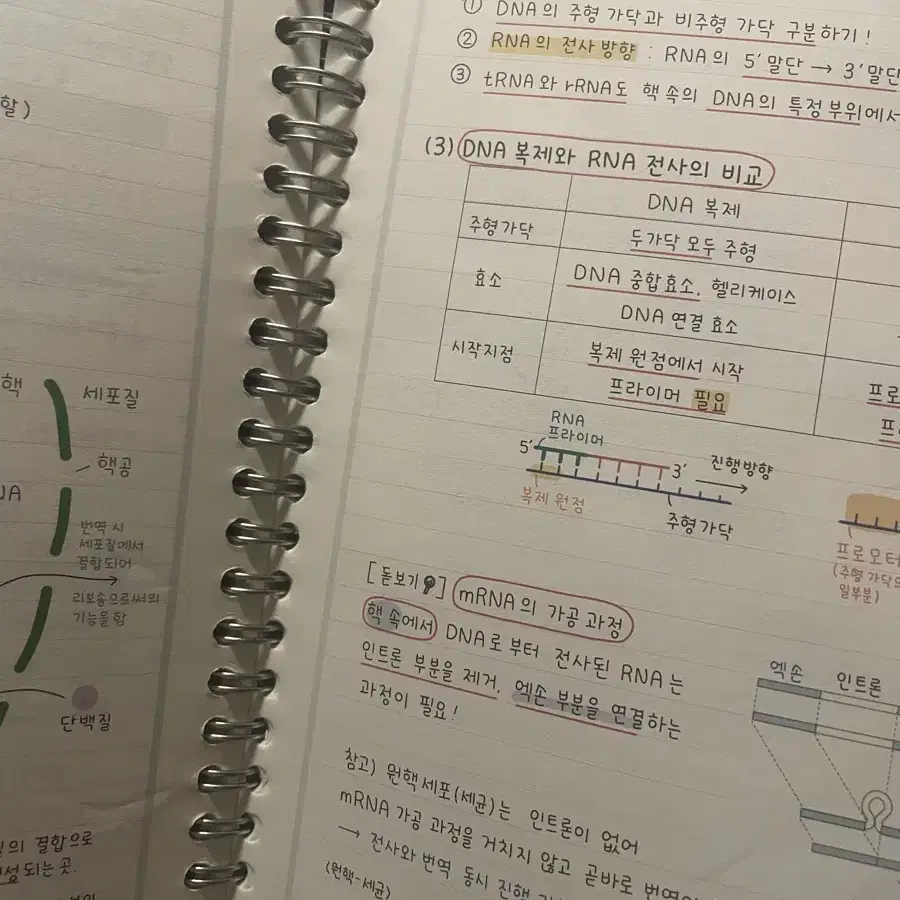 할)
핵
세포질
핵공
번역 시
세포질에서
결합되어
리보솜으로써의
기능을 함
단백질
의 결합으로
되는 곳.
① DNA의 주형 가닥과 비주형 가닥 구분하기!
② RNA의 전사 방향 : RNA의 5′말단 → 3′말단
③ tRNA와 rRNA도 핵 속의 DNA의 특정부위에서
(3) DNA 복제와 RNA 전사의 비교
DNA 복제
주형가닥
두가닥 모두 주형
효소
DNA 중합효소, 헬리케이스
DNA 연결 효소
시작지점
복제 원점에서 시작
프라이머 필요
프로
프
RNA
프라이머
5′
3′
진행방향
복제 원점
주형가닥
프로모터
(주형 가닥의
일부분)
[돋보기] mRNA의 가공 과정
핵 속에서 DNA로부터 전사된 RNA는
인트론 부분을 제거, 엑손 부분을 연결하는
과정이 필요!
엑손
인트론
참고) 원핵세포(세균)는 인트론이 없어
mRNA 가공 과정을 거치지 않고 곧바로 번역
→ 전사와 번역 동시 진행
(원핵-세균)